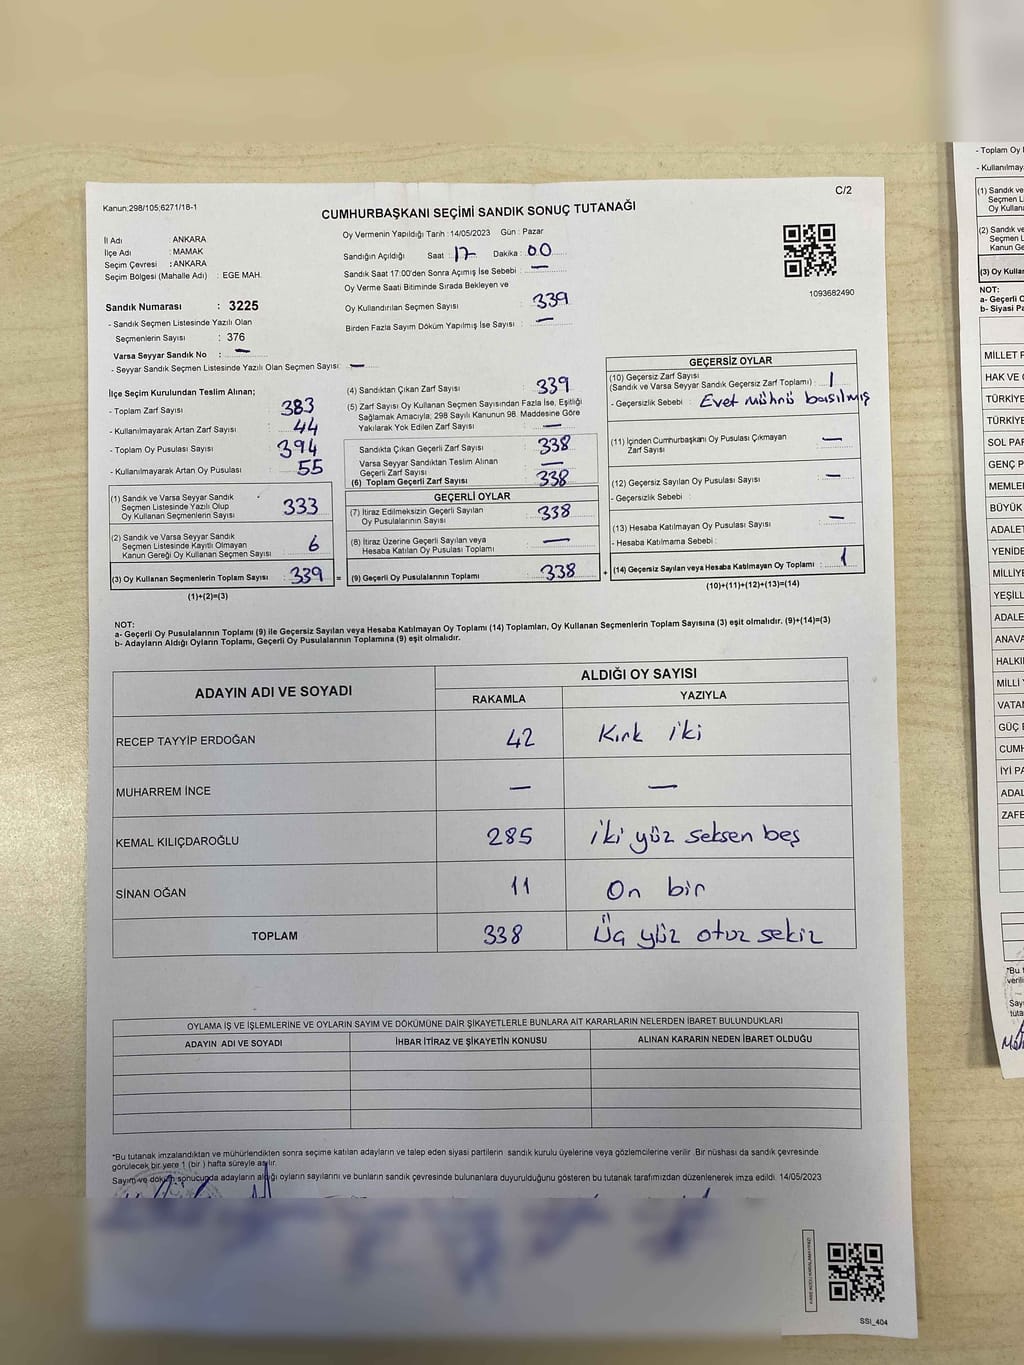 C/2
Kanun;298/105;6271/18-1
CUMHURBAŞKANI SEÇİMİ SANDIK SONUÇ TUTANAĞI
İl Adı : ANKARA
İlçe Adı : MAMAK
Seçim Çevresi : ANKARA
Seçim Bölgesi (Mahalle Adı) : EGE MAH.
Oy Vermenin Yapıldığı Tarih : 14/05/2023 Gün : Pazar
Sandığın Açıldığı Saat : 17 Dakika : 00
Sandık Saat 17:00'den Sonra Açımış İse Sebebi : —
Oy Verme Saati Bitiminde Sırada Bekleyen ve
Oy Kullandırılan Seçmen Sayısı : 339
Birden Fazla Sayım Döküm Yapılmış İse Sayısı : —
1093682490
Sandık Numarası : 3225
- Sandık Seçmen Listesinde Yazılı Olan
Seçmenlerin Sayısı : 376
Varsa Seyyar Sandık No : —
- Seyyar Sandık Seçmen Listesinde Yazılı Olan Seçmen Sayısı: —
İlçe Seçim Kurulundan Teslim Alınan;
- Toplam Zarf Sayısı : 383
- Kullanılmayarak Artan Zarf Sayısı : 44
- Toplam Oy Pusulası Sayısı : 394
- Kullanılmayarak Artan Oy Pusulası : 55
(1) Sandık ve Varsa Seyyar Sandık
Seçmen Listesinde Yazılı Olup
Oy Kullanan Seçmenlerin Sayısı : 333
(2) Sandık ve Varsa Seyyar Sandık
Seçmen Listesinde Kayıtlı Olmayan
Kanun Gereği Oy Kullanan Seçmen Sayısı : 6
(3) Oy Kullanan Seçmenlerin Toplam Sayısı : 339 =
(1)+(2)=(3)
(4) Sandıktan Çıkan Zarf Sayısı : 339
(5) Zarf Sayısı Oy Kullanan Seçmen Sayısından Fazla İse, Eşitliği
Sağlamak Amacıyla; 298 Sayılı Kanunun 98. Maddesine Göre
Yakılarak Yok Edilen Zarf Sayısı : —
Sandıkta Çıkan Geçerli Zarf Sayısı : 338
Varsa Seyyar Sandıktan Teslim Alınan
Geçerli Zarf Sayısı : —
(6) Toplam Geçerli Zarf Sayısı : 338
GEÇERLİ OYLAR
(7) İtiraz Edilmeksizin Geçerli Sayılan
Oy Pusulalarının Sayısı : 338
(8) İtiraz Üzerine Geçerli Sayılan veya
Hesaba Katılan Oy Pusulası Toplamı : —
(9) Geçerli Oy Pusulalarının Toplamı : 338 +
GEÇERSİZ OYLAR
(10) Geçersiz Zarf Sayısı
(Sandık ve Varsa Seyyar Sandık Geçersiz Zarf Toplamı) : 1
- Geçersizlik Sebebi : Evet mührü basılmış
(11) İçinden Cumhurbaşkanı Oy Pusulası Çıkmayan
Zarf Sayısı : —
(12) Geçersiz Sayılan Oy Pusulası Sayısı : —
- Geçersizlik Sebebi :
(13) Hesaba Katılmayan Oy Pusulası Sayısı : —
- Hesaba Katılmama Sebebi :
(14) Geçersiz Sayılan veya Hesaba Katılmayan Oy Toplamı : 1
(10)+(11)+(12)+(13)=(14)
NOT:
a- Geçerli Oy Pusulalarının Toplamı (9) ile Geçersiz Sayılan veya Hesaba Katılmayan Oy Toplamı (14) Toplamları, Oy Kullanan Seçmenlerin Toplam Sayısına (3) eşit olmalıdır. (9)+(14)=(3)
b- Adayların Aldığı Oyların Toplamı, Geçerli Oy Pusulalarının Toplamına (9) eşit olmalıdır.
ADAYIN ADI VE SOYADI
ALDIĞI OY SAYISI
RAKAMLA YAZIYLA
RECEP TAYYİP ERDOĞAN 42 Kırk iki
MUHARREM İNCE — —
KEMAL KILIÇDAROĞLU 285 iki yüz seksen beş
SİNAN OĞAN 11 On bir
TOPLAM 338 Üç yüz otuz sekiz
OYLAMA İŞ VE İŞLEMLERİNE VE OYLARIN SAYIM VE DÖKÜMÜNE DAİR ŞİKAYETLERLE BUNLARA AİT KARARLARIN NELERDEN İBARET BULUNDUKLARI
ADAYIN ADI VE SOYADI İHBAR İTİRAZ VE ŞİKAYETİN KONUSU ALINAN KARARIN NEDEN İBARET OLDUĞU
*Bu tutanak imzalandıktan ve mühürlendikten sonra seçime katılan adayların ve talep eden siyasi partilerin sandık kurulu üyelerine veya gözlemcilerine verilir. Bir nüshası da sandık çevresinde
görülecek bir yere 1 (bir ) hafta süreyle asılır.
Sayım ve döküm sonucunda adayların aldığı oyların sayılarını ve bunların sandık çevresinde bulunanlara duyurulduğunu gösteren bu tutanak tarafımızdan düzenlenerek imza edildi. 14/05/2023
SSI_404
- Toplam Oy
- Kullanılmay
(1) Sandık ve
Seçmen L
Oy Kullan
(2) Sandık ve
Seçmen L
Kanun Ge
(3) Oy Kullan
NOT:
a- Geçerli O
b- Siyasi Pa
MİLLET P
HAK VE
TÜRKİYE
TÜRKİYE
SOL PAR
GENÇ P
MEMLE
BÜYÜK
ADALET
YENİDE
MİLLİYE
YEŞİLL
ADALE
ANAVA
HALKI
MİLLİ
VATAN
GÜÇ B
CUMH
İYİ PA
ADAL
ZAFE
*Bu t
verili
Sayı
tuta